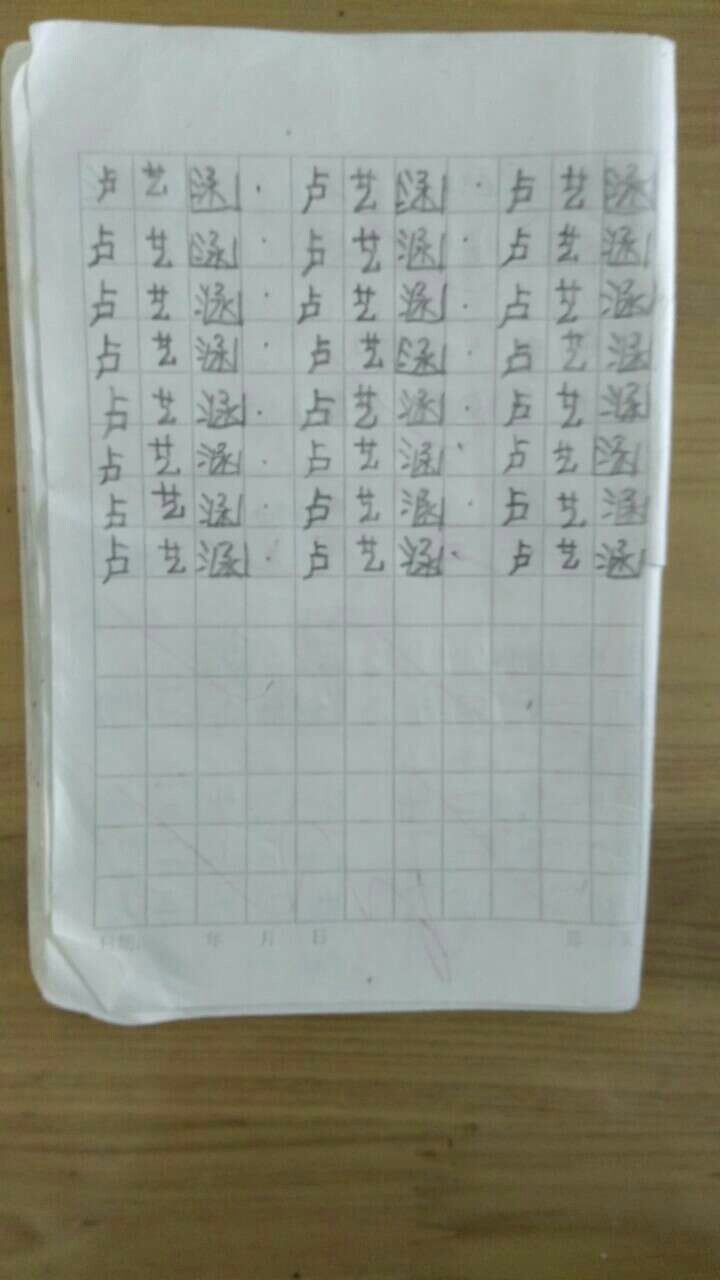 卢艺涵·卢艺涵·卢艺涵
卢艺涵·卢艺涵·卢艺涵
卢艺涵·卢艺涵·卢艺涵
卢艺涵·卢艺涵·卢艺涵
卢艺涵·卢艺涵·卢艺涵
卢艺涵·卢艺涵·卢艺涵
卢艺涵·卢艺涵·卢艺涵
卢艺涵·卢艺涵·卢艺涵
日期 年 月 日